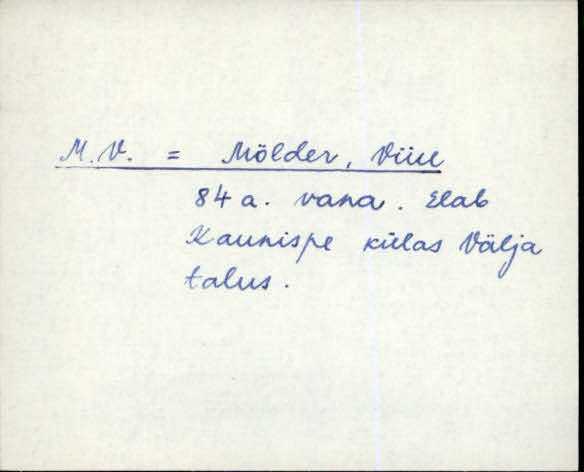 M.V. = Mölder, Viiu
84 a. vana. Elab
Kaunispe külas Välja
talus.